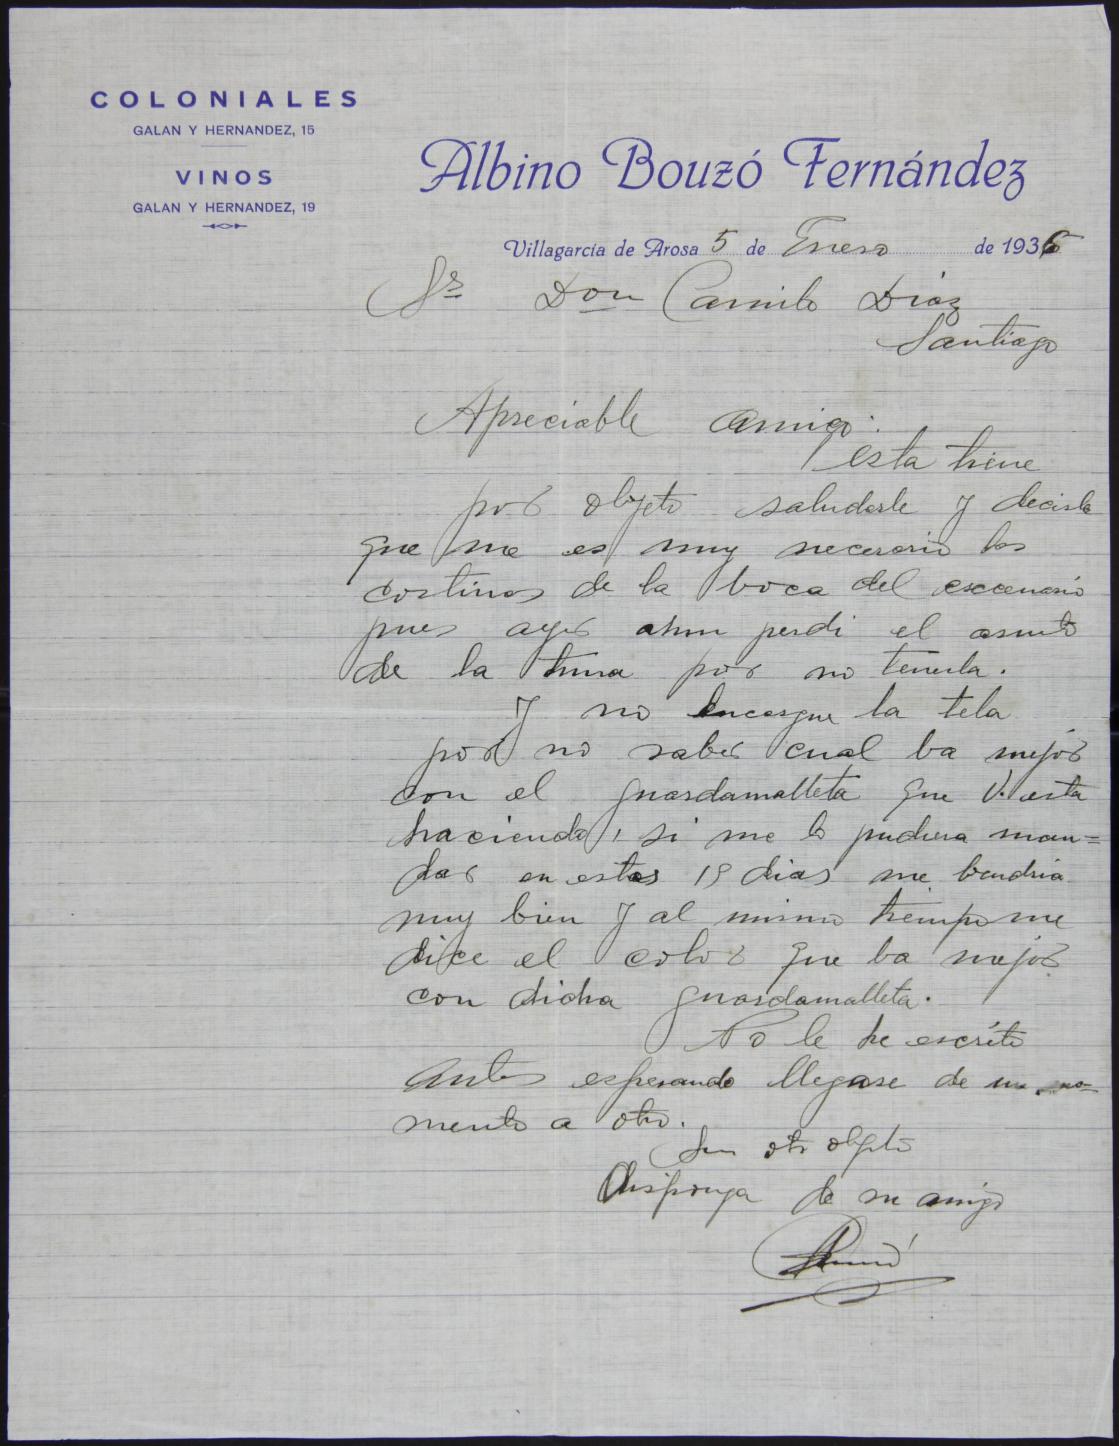 COLONIALES
GALAN Y HERNANDEZ, 15
VINOS
GALAN Y HERNANDEZ, 19
Albino Bouzó Fernández
Villagarcía de Arosa 5 de Enero de 1936
Sr Don Camilo Díaz
Santiago
Apreciable amigo:
esta tiene
por objeto saludarle y decirle
que me es muy necesario las
cortinas de la boca del escenario
pues ayer perdi el asunto
de la tuna por no tenerla.
Y no encargue la tela
por no saber cual ba mejor
con el guardamalleta que V. esta
haciendo, si me lo pudiera man=
dar en estos dias me bendria
muy bien y al mismo tiempo me
dice el color que ba mejor
con dicha guardamalleta.
No le he escrito
antes esperando llegase de un mo=
mento a otro.
Sin otro objeto
disponga de su amigo